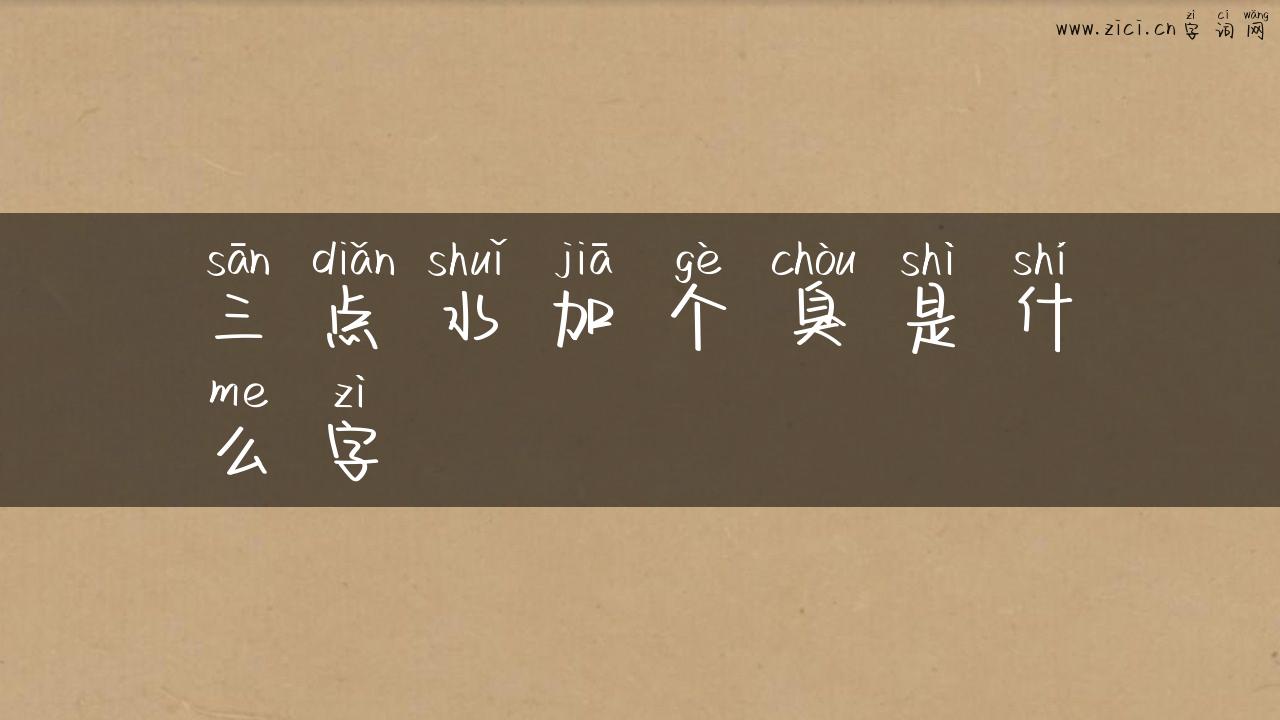 zì cí wǎng
www.zici.cn 字词网
sān diǎn shuǐ jiā gè chòu shì shí
三点水加个臭是什
me zì
么字